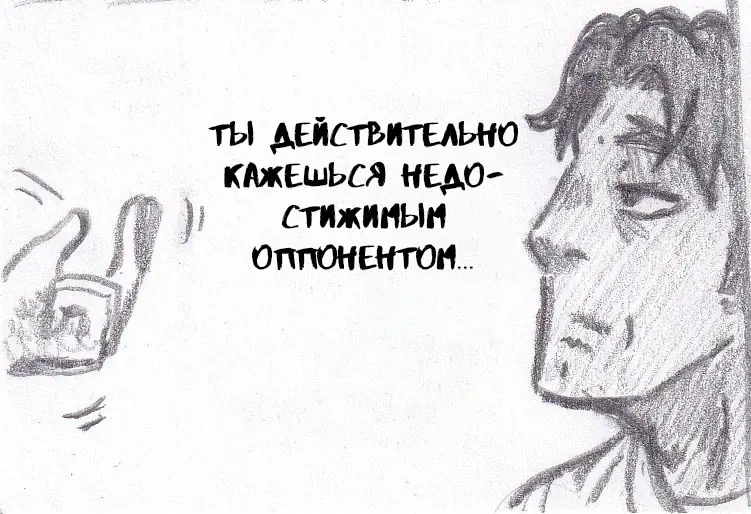 ТЫ ДЕЙСТВИТЕЛЬНО
КАЖЕШЬСЯ НЕДО-
СТИЖИМЫМ
ОППОНЕНТОМ...